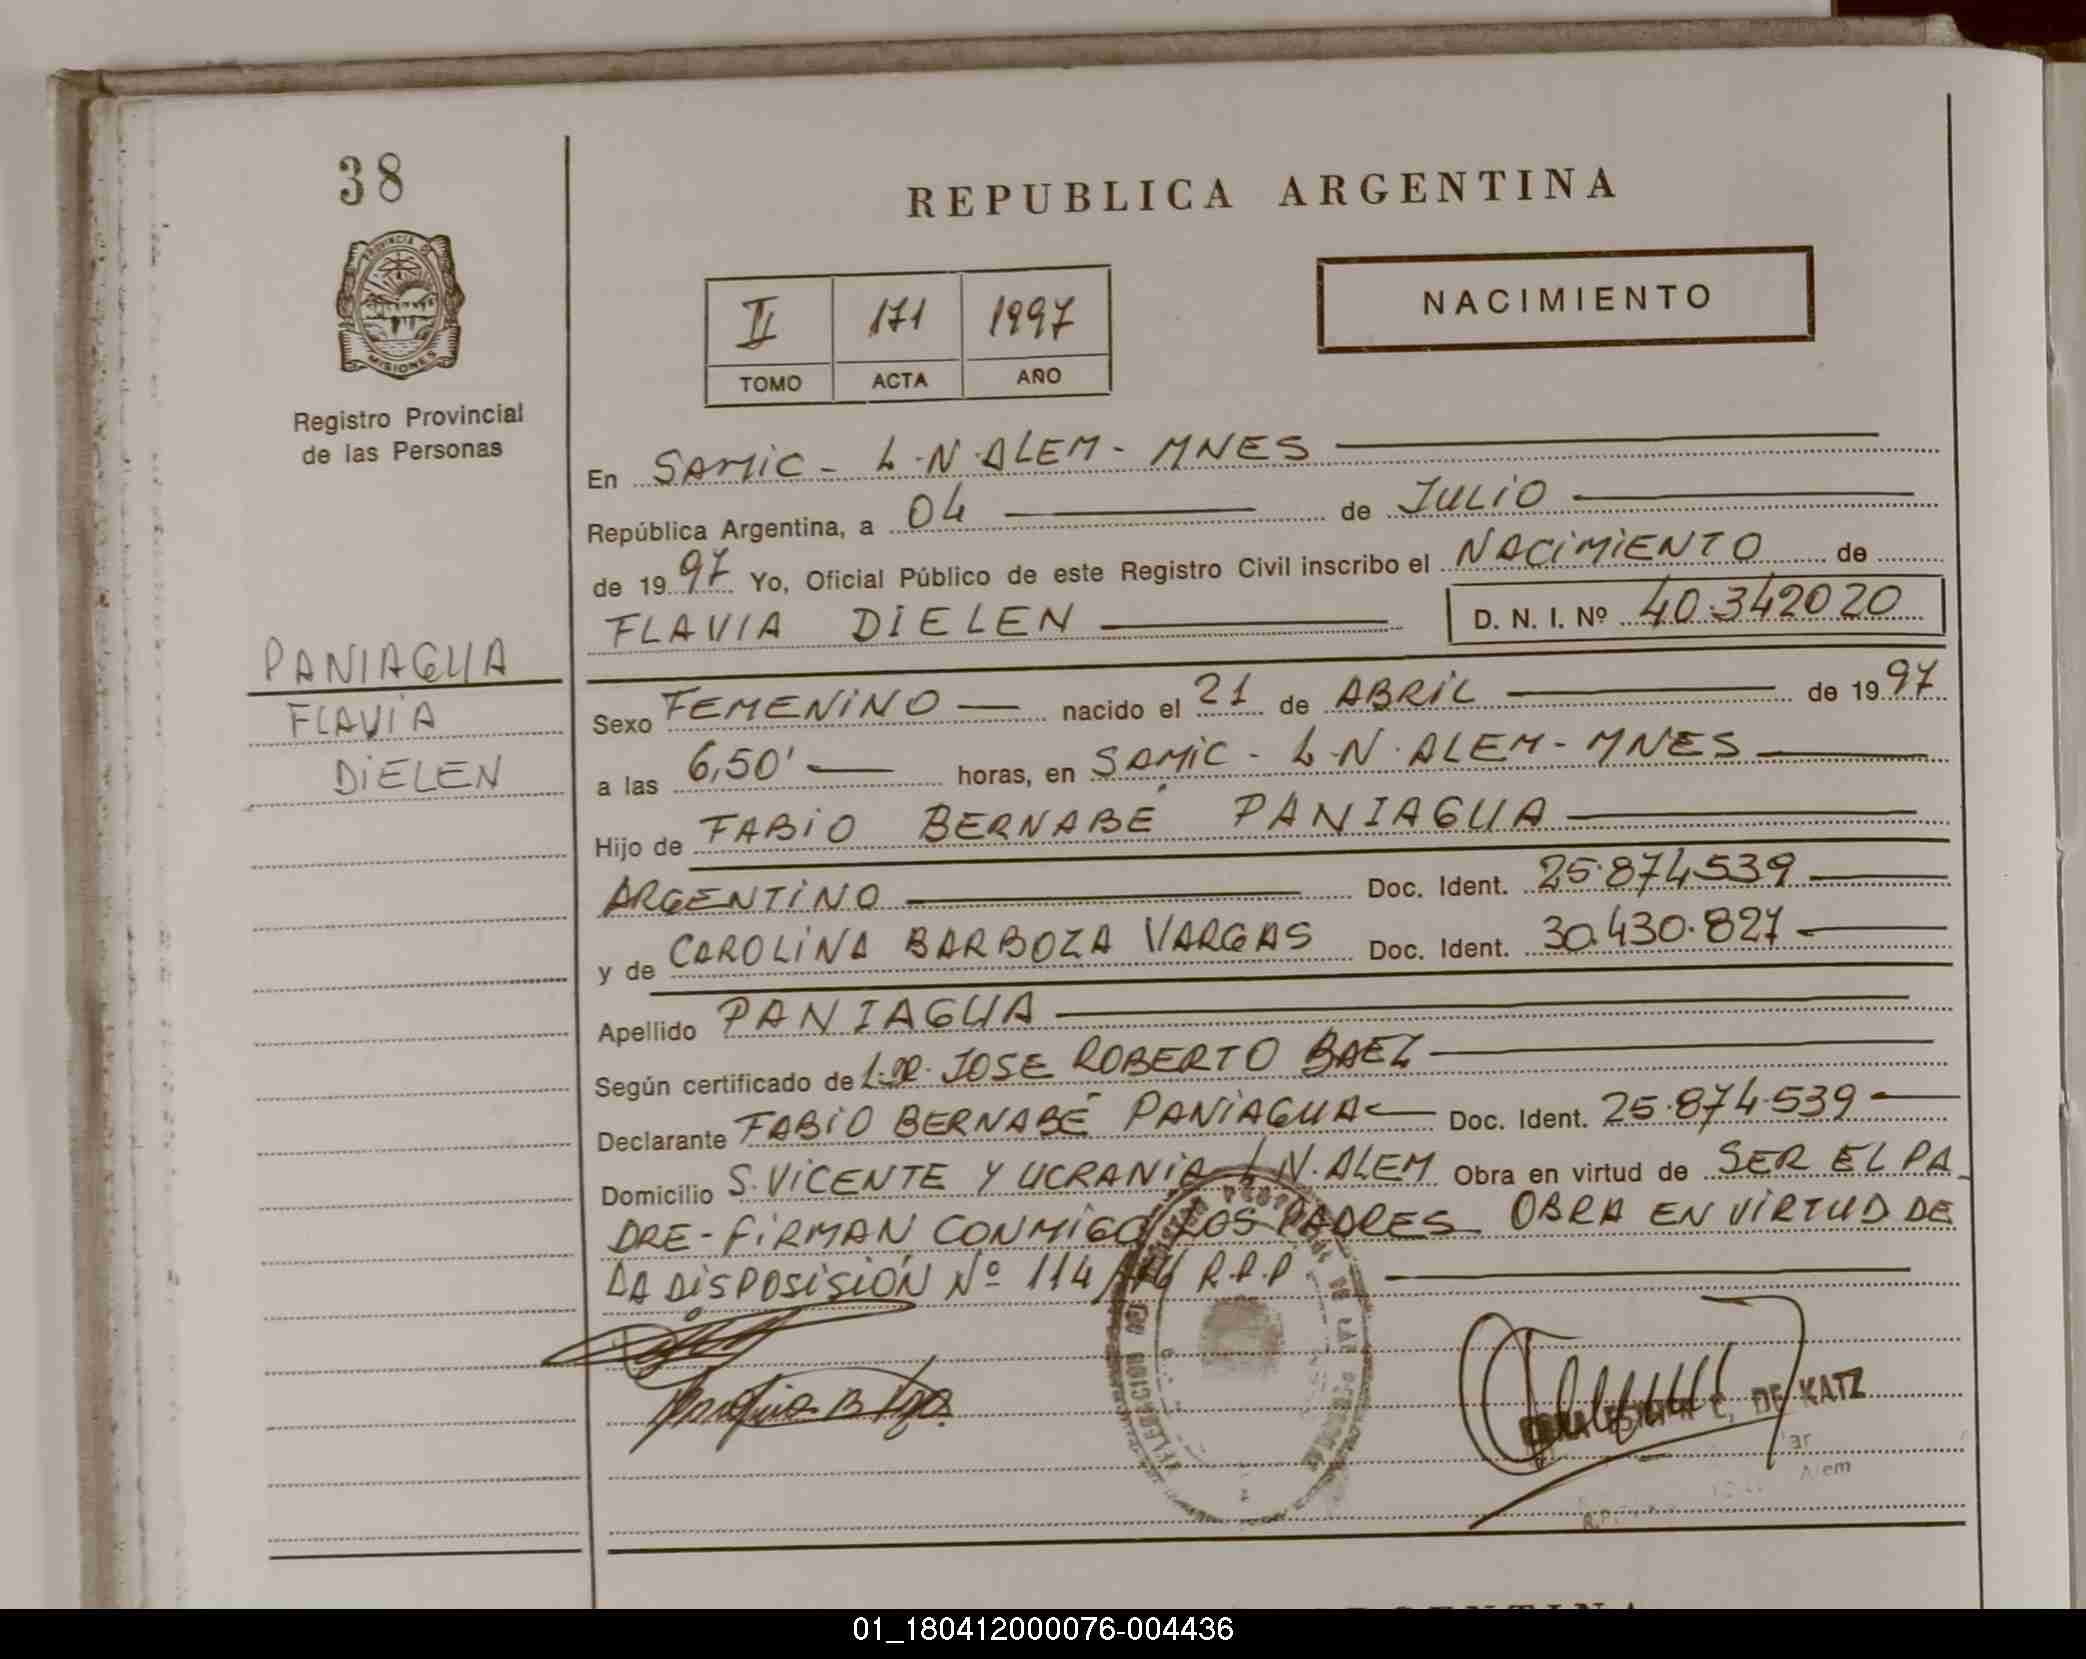 38
PROVINCIA DE
MISIONES
Registro Provincial
de las Personas
PANIAGUA
FLAVIA
DIELEN
REPUBLICA ARGENTINA
II 171 1997
TOMO ACTA AÑO
NACIMIENTO
En SAMIC - L.N.ALEM - MNES
República Argentina, a 04 de JULIO
de 1997 Yo, Oficial Público de este Registro Civil inscribo el NACIMIENTO de
FLAVIA DIELEN D. N. I. Nº 40.342020
Sexo FEMENINO nacido el 21 de ABRIL de 1997
a las 6,50' horas, en SAMIC - L.N.ALEM - MNES
Hijo de FABIO BERNABÉ PANIAGUA
ARGENTINO Doc. Ident. 25.874539
y de CAROLINA BARBOZA VARGAS Doc. Ident. 30.430.827
Apellido PANIAGUA
Según certificado de JOSE ROBERTO BAEZ
Declarante FABIO BERNABÉ PANIAGUA Doc. Ident. 25.874.539
Domicilio S.VICENTE Y UCRANIA L.N.ALEM Obra en virtud de SER EL PA
DRE - FIRMAN CONMIGO LOS PADRES OBRA EN VIRTUD DE
LA DISPOSISIÓN Nº 114/ R.P.P
DE LAS
C. DE KATZ
Alem
01_180412000076-004436